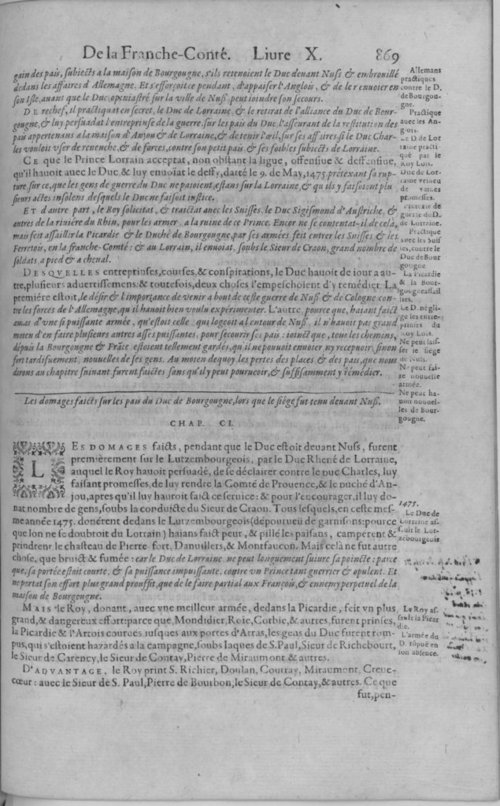 De la Franche-Conté. Liure X. 869
gain des païs, subiects a la maison de Bourgougne, s'ils retenoient le Duc deuant Nuss & embrouillé
dedans les affaires d'Allemagne. Et s'efforçoit ce pendant, d'appaiser l'Anglois, & de le renuoier en
son Isle, auant que le Duc openiastré sur la ville de Nuss peut ioindre son secours.
DE rechef, il practiqua en secret, le Duc de Lorraine, & le retira de l'alliance du Duc de Bour-
gougne, & luy persuada l'entreprinse de la guerre, sur les païs du Duc l'asseurant de la restitution des
païs appertenans a la maison d'Anjou & de Lorraine, & de tenir l'œil, sur ses affaires si le Duc Char-
les vouloit vser de reuenche, & de forces, contre son petit païs & ses foibles subiects de Lorraine.
CE que le Prince Lorrain accepta, non obstant la ligue, offensiue & deffensiue,
qu'il hauoit auec le Duc, & luy enuoïat le deffy, datté le 9. de May, 1475 pretexant sa rup-
ture sur ce, que les gens de guerre du Duc ne païoient, estans sur la Lorraine, & qu'ils y faisoient plu
sieurs actes insolens desquels le Duc ne faisoit iustice.
ET d'autre part, le Roy solicitat, & reacliat auec les Suisses, le Duc Sigismond d'Austriche, &
autres de la riuiere du Rhin, pour les armer a la ruine de ce Prince. Encor ne se contentat-il de cela,
mais feit assaillir la Picardie & le Duché de Bourgougne, par ses armées feit entrer les Suisses & les
Ferretois, en la franche-Comté: & au Lorrain, il enuoiat, soubs le Sieur de Craon, grand nombre de
soldats a pied & a cheual.
DESQVELLES entreprinses, courses, & conspirations, le Duc hauoit de iour a au-
tre, plusieurs aduertissemens: & toutefois, deux choses l'empeschoient d'y remédier. La
première estoit, le désir & l'importance de venir a bout de ceste guerre de Nuss & de Cologne con-
tre les forces de l'Allemagne, qu'il hauoit bien voulu expérimenter. L'autre, pource que, haiant faict
amas d'vne si puissante armée, qu'estoit celle qui logeoit al entour de Nuss, il n'hauoit pas grand
moien d'en faire plusieurs autres assés puissantes, pour secourir ses païs: ioinct que, tous les chemens,
depuis la Bourgougne & Frāce, estoient tellement gardés, qu'il ne pouuoit enuoier ny recepuoir, sinon
fort tardifuement, nouuelles de ses gens. Au moïen de quoy, les pertes des places & des païs, que nous
dirons au chapitre suiuant furent faictes sans qu'il y peut pouruoir, & suffisamment y remédier.
Les domages faicts sur les païs du Duc de Bourgougne, lors que le siége fut tenu deuant Nuss.
CHAP. CI.
LES DOMAGES faicts, pendant que le Duc estoit deuant Nuss, furent
premièrement sur le Lutzembourgeois, par le Duc Rhené de Lorraine,
auquel le Roy hauoit persuadé, de se déclairer contre le duc Charles, luy
faisant promesses, de luy rendre la Comté de Prouence, & le duché d'An-
jou, apres qu'il luy hauroit faict ce seruice: & pour l'encourager, il luy do-
nat nombre de gens, soubs la conduicte du Sieur de Craou. Tous lesquels, en ceste mes-
me année 1475. donérent dedans le Lutzembourgeois (dépourueu de garnisons: pource
que lon ne se doubtoit du Lorrain) haians faict peur, & pillé les païsans, campérent &
prindrent le chasteau de Pierre-fort, Danuillers, & Montfaucon. Mais celà ne fut autre
chose, que bruict & fumée: car le Duc de Lorraine ne peut longuement suiure sa poincte: parce
que, sa portée estoit courte, & sa puissance impuissante, contre vn Prince tant guerrier & opulent. Et
ne portat son effort plus grand proussit, que de le faire partial aux François, & ennemy perpetuel de la
maison de Bourgougne.
MAIS le Roy, donant, auec vne meilleur armée, dedans la Picardie, feit vn plus
grand, & dangereux effort: parce que, Mondidier, Roie, Corbie, & autres, furent prinses,
la Picardie & l'Artois courues iusques aux portes d'Arras, les gens du Duc furent rom-
pus, qui s'estoient hazardés a la campagne, soubs laques de S. Paul, Sieur de Richebourt,
le Sieur de Carency, le Sieur de Contay, Pierre de Miraumont & autres.
D'AVANTAGE, le Roy print S. Richier, Doulan, Courray, Miraumont, Creue-
cœur: auec le Sieur de S. Paul, Pierre de Bourbon, le Sieur de Contay, & autres. Ce que
fut, pen-
Allemans
practiqués
contre le D.
de Bourgou-
gne.
Practique
auec les An-
glois.
Le D. de Lor
raine practi-
qué par le
Roy Lois.
Duc de Lor-
raine
de
promesses.
guerre
de Lorraine.
Practique
auec les Suis
ses, contre le
Duc de Bour
gougne
La Picardie
& la Bour-
gougne assail
lies.
Le D. néglige
les entre-
prinses du
Roy Lois.
Ne peut lais-
ser le siége
de Nuss.
Ne peut fai-
re nouuelle
armée.
Ne peut ha-
uoir nouuel-
les de Bour-
gougne.
1475.
Le Duc de
Lorraine as-
sault le Lut-
zebourgeois.
Le Roy as-
sault la Picar
die.
L'armée du
D. rōpue en
son absence.